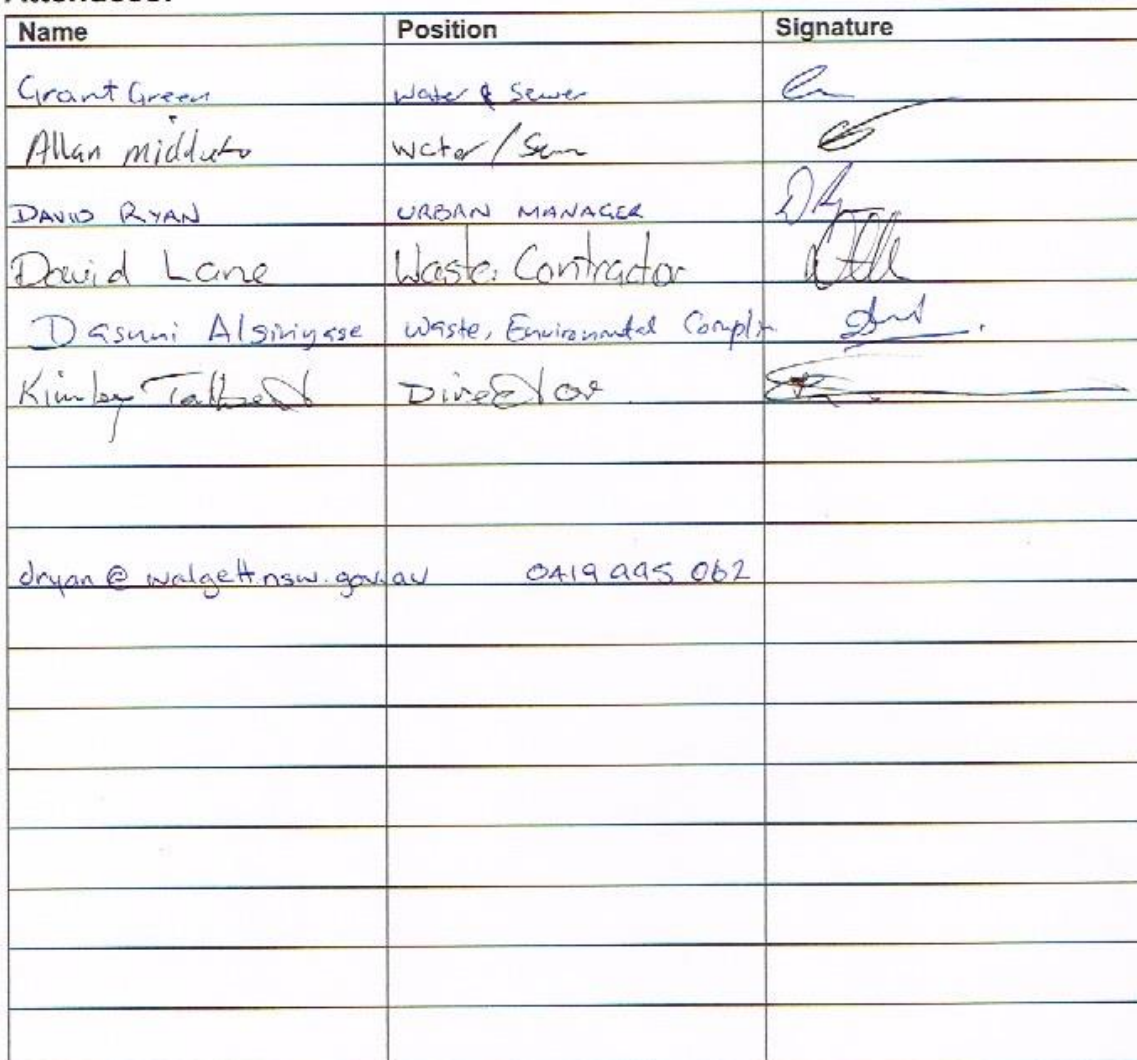 Name Position Signature
Grant Green Water & Sewer
Allan Water / Sewer
DAVID RYAN URBAN MANAGER
David Lane Waste Contractor
Dasuni Waste, Environmental
Director
dryan@walgett.nsw.gov.au 0419 995 062